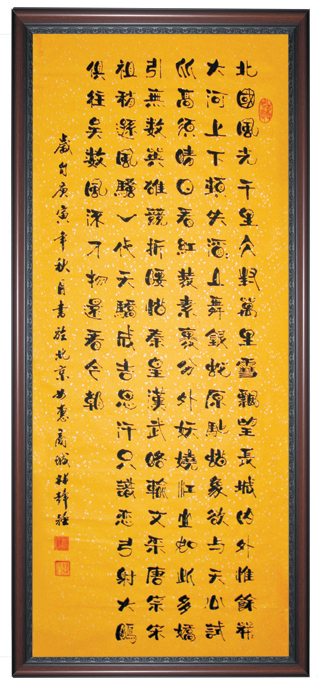 北國風光千里冰封萬里雪飄望長城内外惟餘莽
大河上下頓失滔山舞銀蛇原馳蜡象欲与天公試
比高須晴日看紅裝素裹分外妖嬈江山如此多嬌
引無數英雄競折腰惜秦皇漢武略輸文采唐宗宋
祖稍遜風騷一代天驕成吉思汗只識彎弓射大鵰
俱往矣數風流人物還看今朝
庚寅年秋月書於北京商城